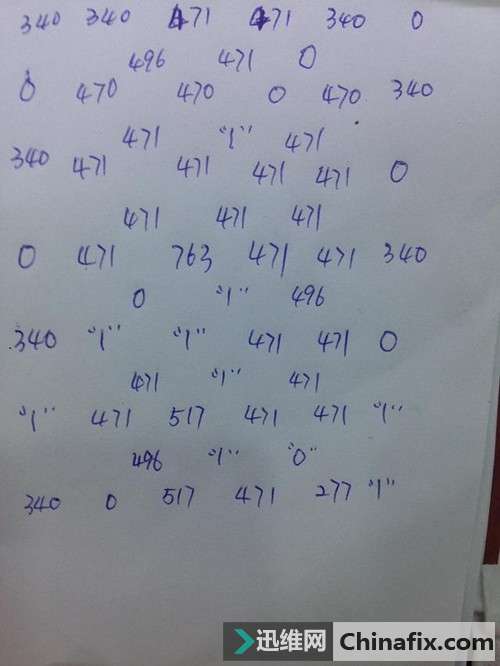 340 340 471 471 340 0
496 471 0
0 470 470 0 470 340
471 "1" 471
340 471 471 471 471 0
471 471 471
0 471 763 471 471 340
0 "1" 496
340 "1" "1" 471 471 0
471 "1" 471
"1" 471 517 471 471 "1"
496 "1" "0"
340 0 517 471 277 "1"
迅维网 Chinafix.com